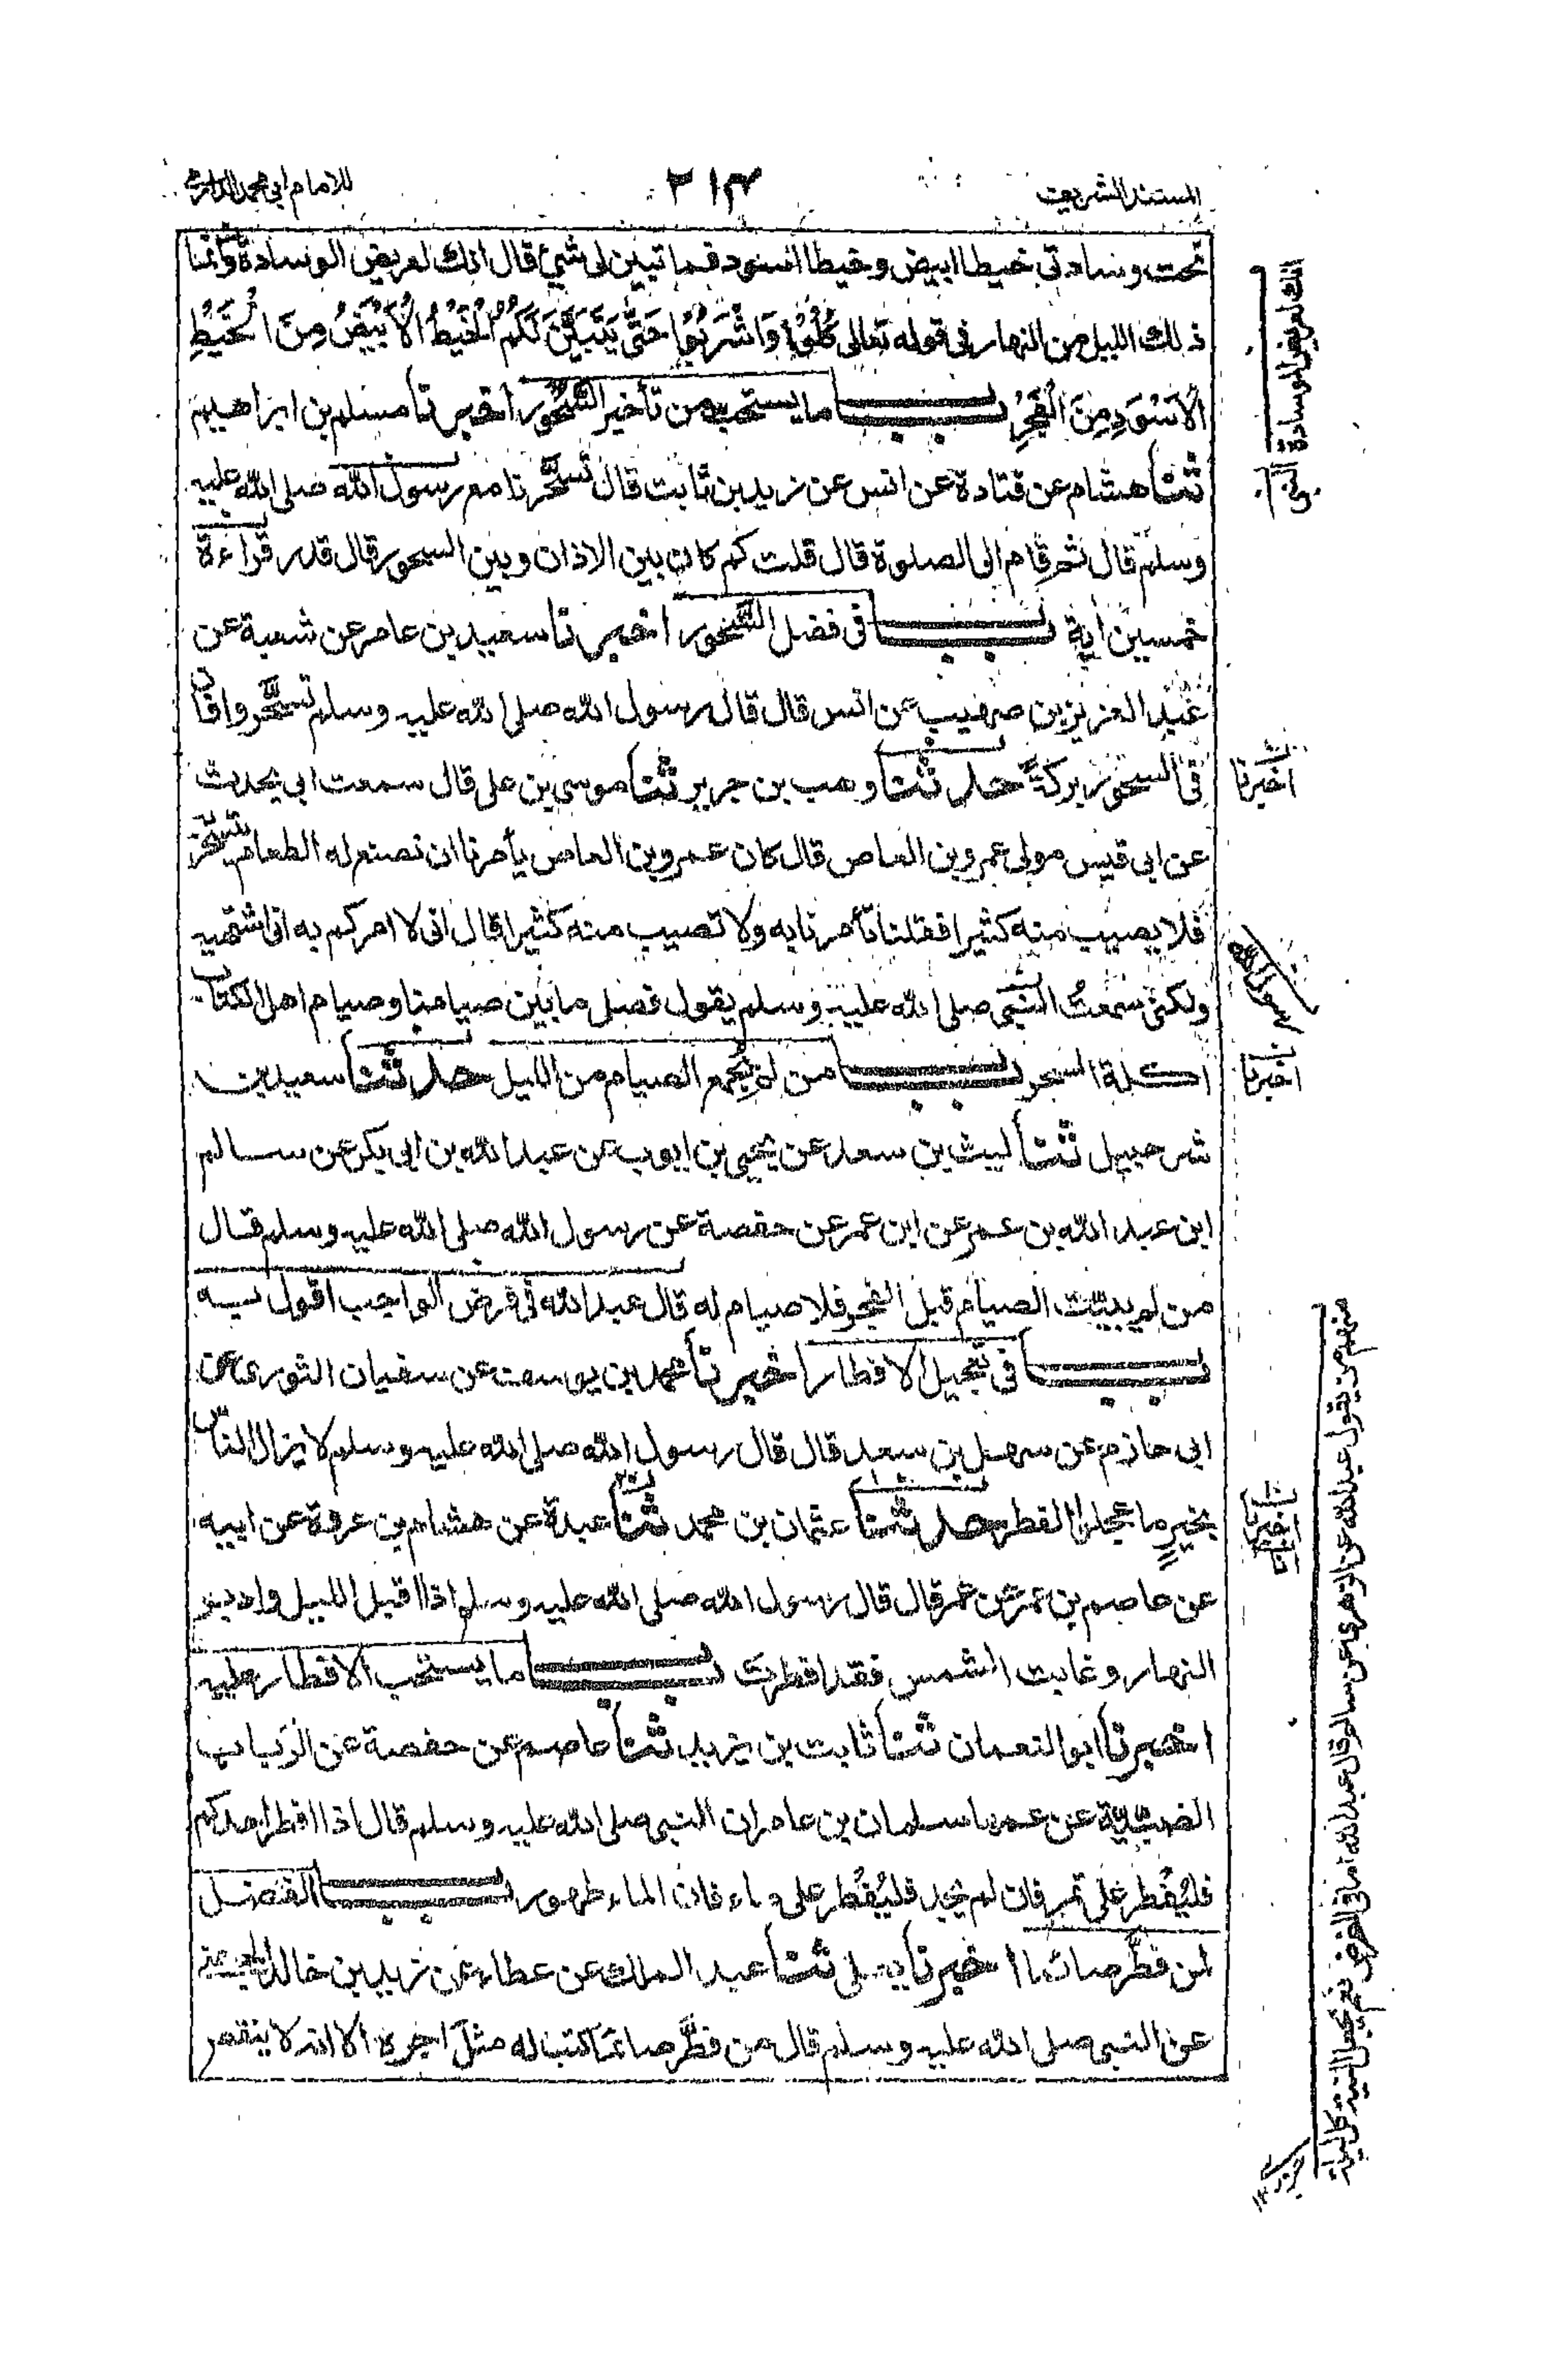 المستند الشريف ٢١٣ للامام ابي محمد الدارمي
تحت وسادتي خيطا ابيض وخيطا اسود فما تبين لى شيئ قال انك لعريض الوسادة وانما
ذلك الليل من النهار في قوله تعالى كُلُوْا وَاشْرَبُوْا حَتّٰى يَتَبَيَّنَ لَكُمُ الْخَيْطُ الْاَبْيَضُ مِنَ الْخَيْطِ
الْاَسْوَدِ مِنَ الْفَجْرِ باب ما يستحب من تأخير السحور اخبرنا مسلم بن ابراهيم
ثنا هشام عن قتادة عن انس عن زيد بن ثابت قال تسحرنا مع رسول الله صلى الله عليه
وسلم قال ثم قام الى الصلوة قال قلت كم كان بين الاذان وبين السحور قال قدر قراءة
خمسين اية باب في فضل السحور اخبرنا سعيد بن عامر عن شعبة عن
عبد العزيز بن صهيب عن انس قال قال رسول الله صلى الله عليه وسلم تسحروا فان
فى السحور بركة حدثنا وهب بن جرير ثنا موسى بن على قال سمعت ابي يحدث
عن ابى قيس مولى عمرو بن العاص قال كان عمرو بن العاص يأمرنا ان نصنع له الطعام يتسحر
فلا يصيب منه كثيرا فقلنا تأمرنا به ولا تصيب منه كثيرا قال انى لا امركم به انى اشتهيه
ولكنى سمعت النبى صلى الله عليه وسلم يقول فصل ما بين صيامنا وصيام اهل الكتاب
اكلة السحر باب من لم يجمع الصيام من الليل حدثنا سعيد بن
شرحبيل ثنا ليث بن سعد عن يحيى بن ايوب عن عبد الله بن ابى بكر عن سالم
ابن عبد الله بن عمر عن ابن عمر عن حفصة عن رسول الله صلى الله عليه وسلم قال
من لم يبيت الصيام قبل الفجر فلا صيام له قال عبد الله فى فرض الواجب اقول به
باب فى تعجيل الافطار اخبرنا محمد بن يوسف عن سفيان الثورى عن
ابى حازم عن سهل بن سعد قال قال رسول الله صلى الله عليه وسلم لا يزال الناس
بخير ما عجلوا الفطر حدثنا عثمان بن محمد ثنا عبدة عن هشام بن عروة عن ابيه
عن عاصم بن عمر عن عمر قال قال رسول الله صلى الله عليه وسلم اذا اقبل الليل وادبر
النهار وغابت الشمس فقد افطرت باب ما يستحب الافطار عليه
اخبرنا ابو النعمان ثنا ثابت بن يزيد ثنا عاصم عن حفصة عن الرباب
الضبية عن عمها سلمان بن عامر ان النبى صلى الله عليه وسلم قال اذا افطر احدكم
فليُفْطِر على تمر فان لم يجد فليُفْطِر على ماء فان الماء طهور باب الفضل
لمن فطّر صائما اخبرنا يعلى ثنا عبد الملك عن عطاء عن زيد بن خالد الجهنى
عن النبى صلى الله عليه وسلم قال من فطّر صائما كتب له مثل اجره الا انه لا ينقص
انك لعريض الوسادة
النبى
اخبرنا
رسول الله
اخبرنا
اخبرنا
منهم من يقول عبد الله عن الزهرى عن سالم قال عبد الله اما فى الفرض فعم يجعل النية كل ليلة